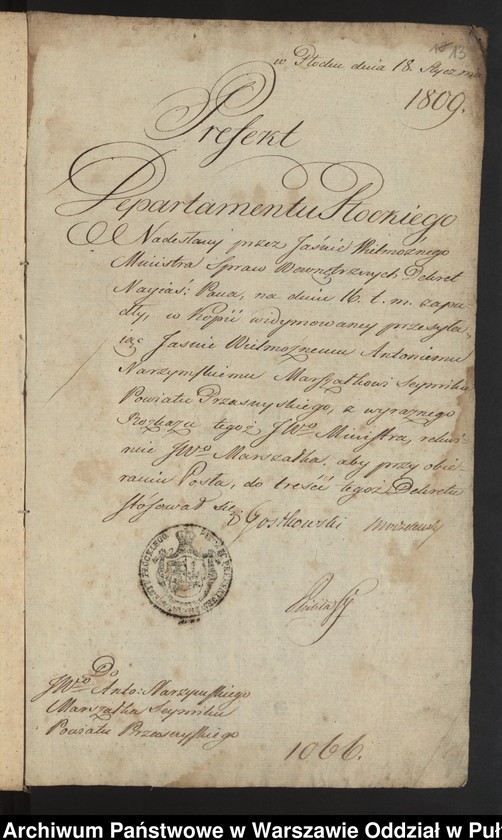 13
w Płocku dnia 18. Stycznia
1809.
Prefekt
Departamentu Płockiego
Nadesłany przez Jaśnie Wielmożnego
Ministra Spraw Wewnętrznych Dekret
Nayiaś: Pana, na dniu 16. t. m. zapa-
dły, w Kopii widymowaney przesyła-
iąc Jaśnie Wielmożnemu Antoniemu
Narzymskiemu Marszałkowi Seymiku
Powiatu Przasnyskiego, z wyraźnego
Rozkazu tegoż JWgo Ministra,
JWgo Marszałka, aby przy obie-
raniu Posła, do treści tegoż Dekretu
stósował się
Gostkowski
PREFEKT DEPARTAMENTU PŁOCKIEGO
Do
JWgo Anto: Narzymskiego
Marszałka Seymiku
Powiatu Przasnyskiego
1066.
Archiwum Państwowe w Warszawie Oddział w Puł